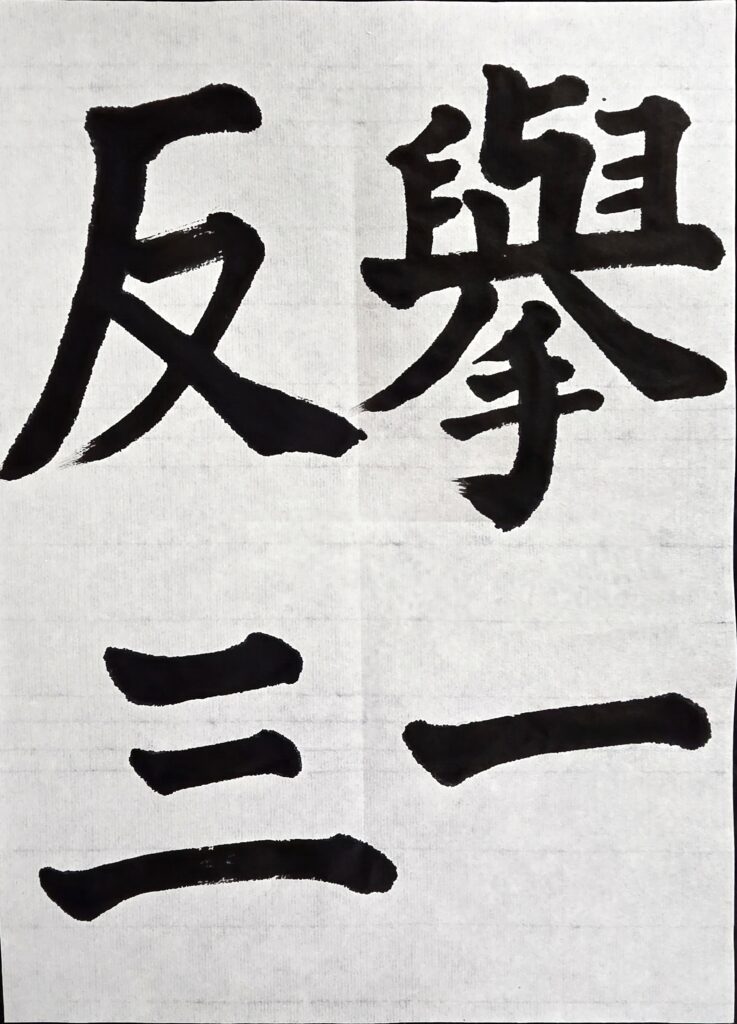 舉一
反三